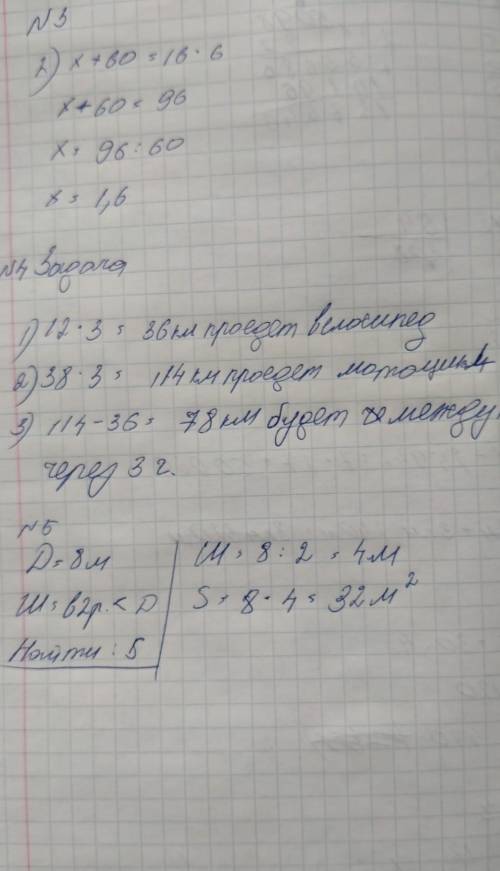 №3
2) x+60=16·6
x+60=96
x=96:60
x=1,6
№4 Задача
1) 12·3= 36км проедет велосипед
2) 38·3= 114 км проедет мотоцикл
3) 114-36= 78км будет между
через 3 г.
№5
D=8м
Ш=в2р.<D
Найти: S
Ш=8:2=4м
S=8·4=32м²